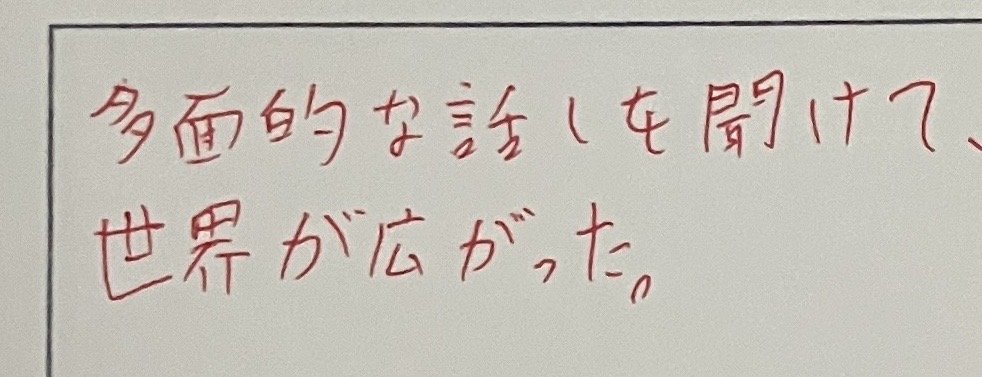 多面的な話しを聞けて、
世界が広がった。